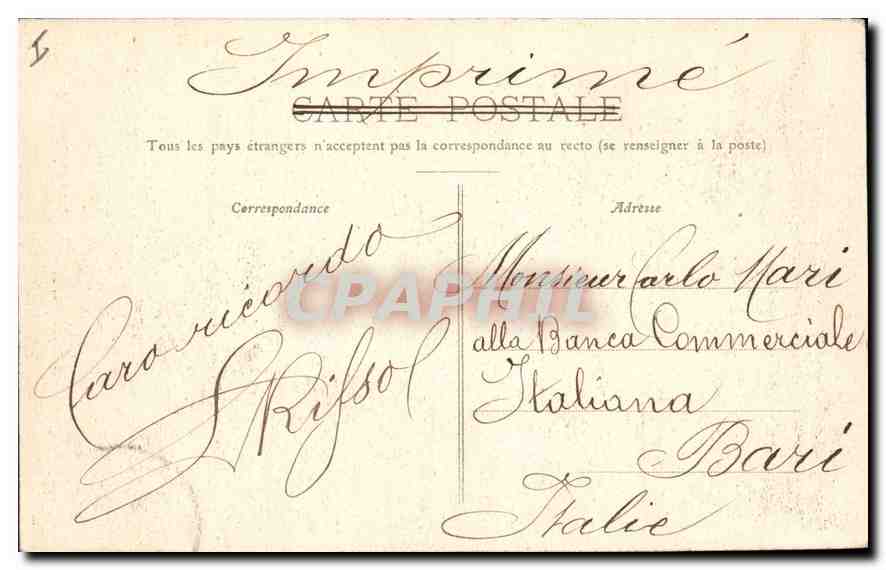 I
Imprimé
CARTE POSTALE
Tous les pays étrangers n'acceptent pas la correspondance au recto (se renseigner à la poste)
Correspondance
Caro ricordo
Adresse
Monsieur Carlo Mari
alla Banca Commerciale
Italiana
Bari
Italie
CPAPHIL